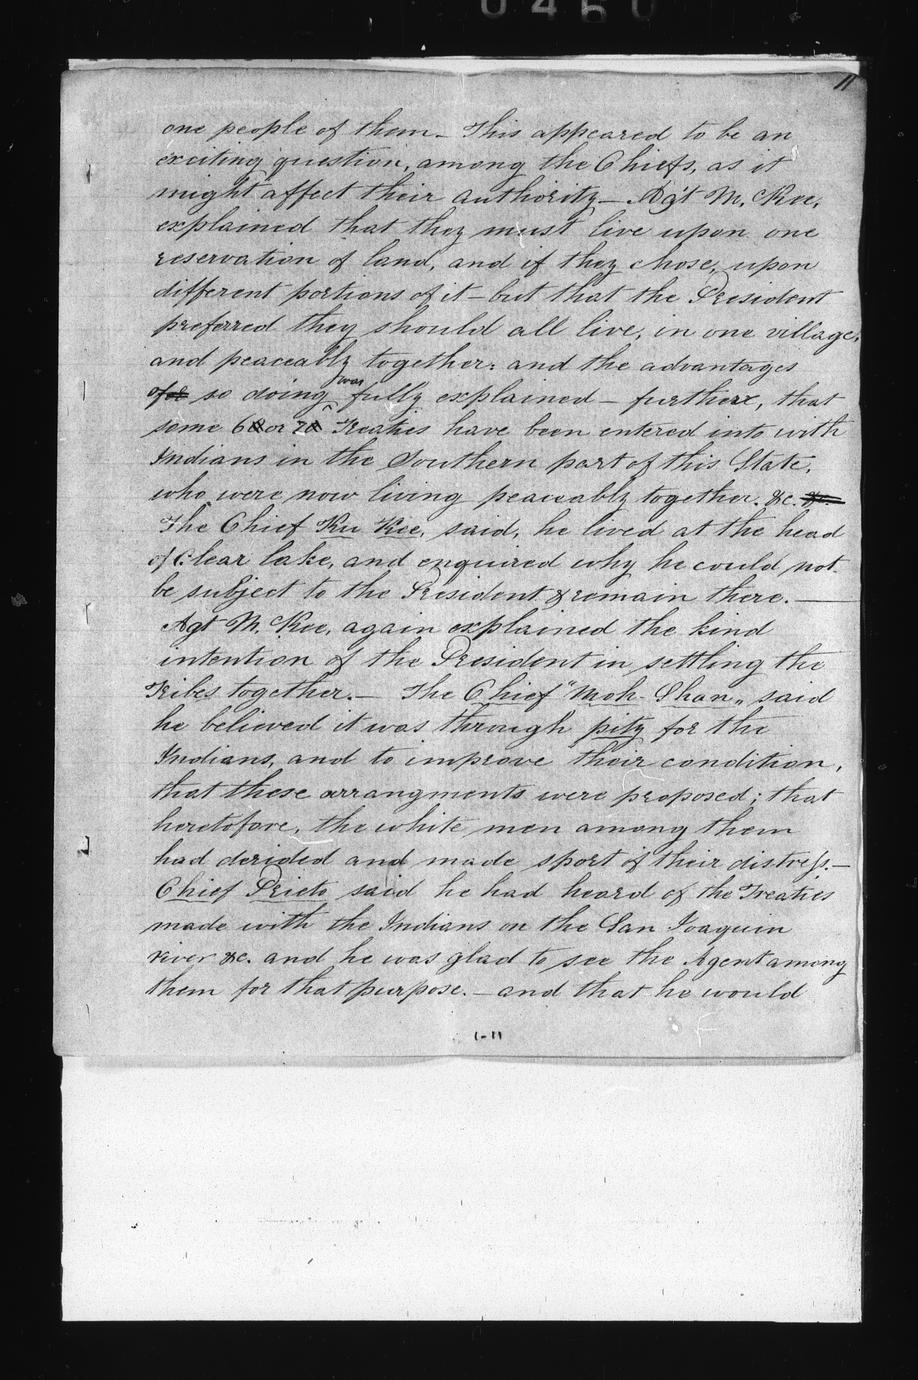 0460
11
one people of them - This appeared to be an
exciting question, among the Chiefs, as it
might affect their authority - Agt M. Kee,
explained that they must live upon one
reservation of land, and if they chose, upon
different portions of it - but that the President
preferred they should all live, in one village,
and peaceably together: and the advantages
of so doing was fully explained - further, that
some 6 or 7 Treaties have been entered into with
Indians in the Southern part of this State,
who were now living peaceably together. &c. &c.
The Chief Ku Kee, said, he lived at the head
of Clear lake, and enquired why he could not
be subject to the President & remain there. —
Agt M. Kee, again explained the kind
intention of the President in settling the
Tribes together. - The Chief "Moh Shan" said
he believed it was through pity for the
Indians, and to improve their condition,
that these arrangments were proposed; that
heretofore, the white men among them
had derided and made sport of their distress. -
Chief Prieto said he had heard of the Treaties
made with the Indians on the San Joaquin
river &c. and he was glad to see the Agent among
them for that purpose. - and that he would
1-11